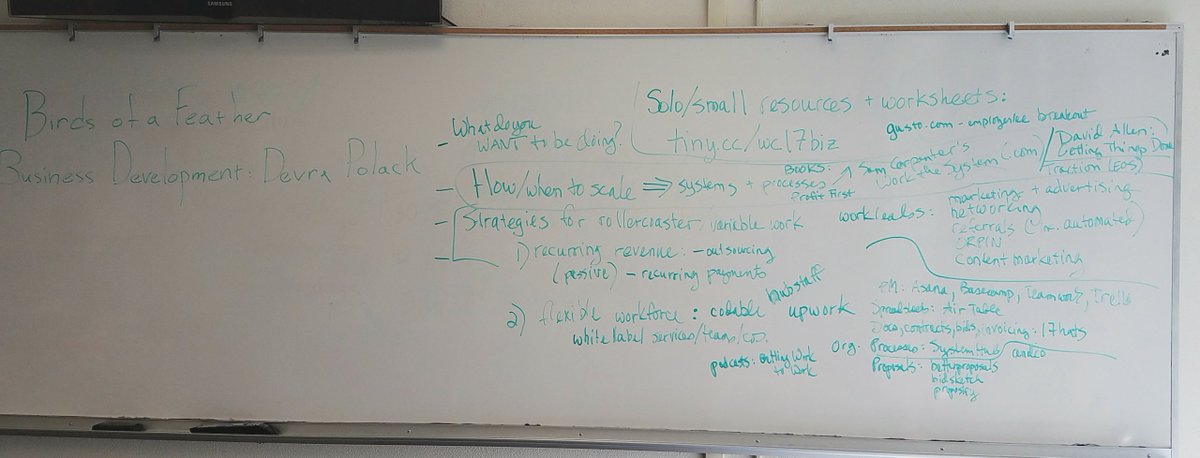 SAMSUNG
Birds of a Feather
Business Development: Devra Polack
- What do you
WANT to be doing?
- How/when to scale ⇒ systems + processes
- Strategies for rollercoaster/variable work
1) recurring revenue: - outsourcing
(passive) - recurring payments
2) flexible workforce: codable upwork
hubstaff
white label services/teams/cos.
podcasts: Getting Work
to Work
Solo/small resources + worksheets:
tiny.cc/wc17biz
gusto.com - employee breakout
Books: Sam Carpenter's
Work the System (.com)
Profit First
David Allen:
Getting Things Done
Traction (EOS)
work leads: marketing + advertising
networking
referrals (automated)
ORPIN
content marketing
PM: Asana, Basecamp, Teamwork, Trello
Spreadsheets: Air Table
Docs, contracts, bids, invoicing: 17hats
Org. Processes: SystemHub
Proposals: betterproposals
bidsketch
proposify